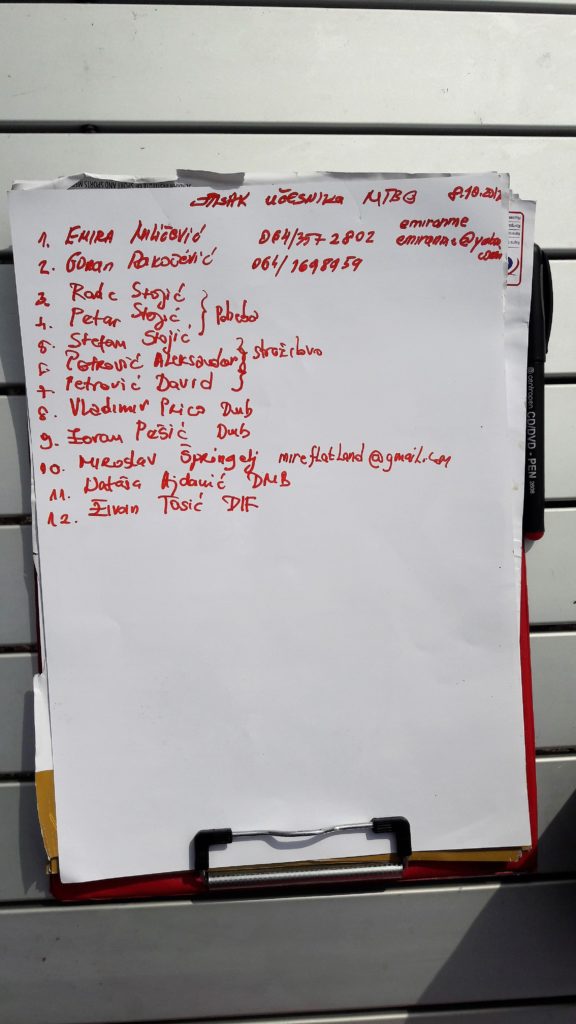 učesnika MTBG 8.10.201
1. EMIRA 064/357 2802 emiranme
emiranme@yahoo
com
2. GORAN RAKOČEVIĆ 064/1698959
3. Rade Stojić
4. Petar Stojić } Pobeda
5. Stefan Stojić
6. Petrović Aleksandar } Stražilovo
7. Petrović David
8. Vladimir Prica Dmb
9. Zoran Pešić Dmb
10. MIROSLAV Špringelj mireflatland@gmail.com
11. Nataša Ajdanić DMB
12. Živan Tosić DIF
centropen CD/DVD - PEN